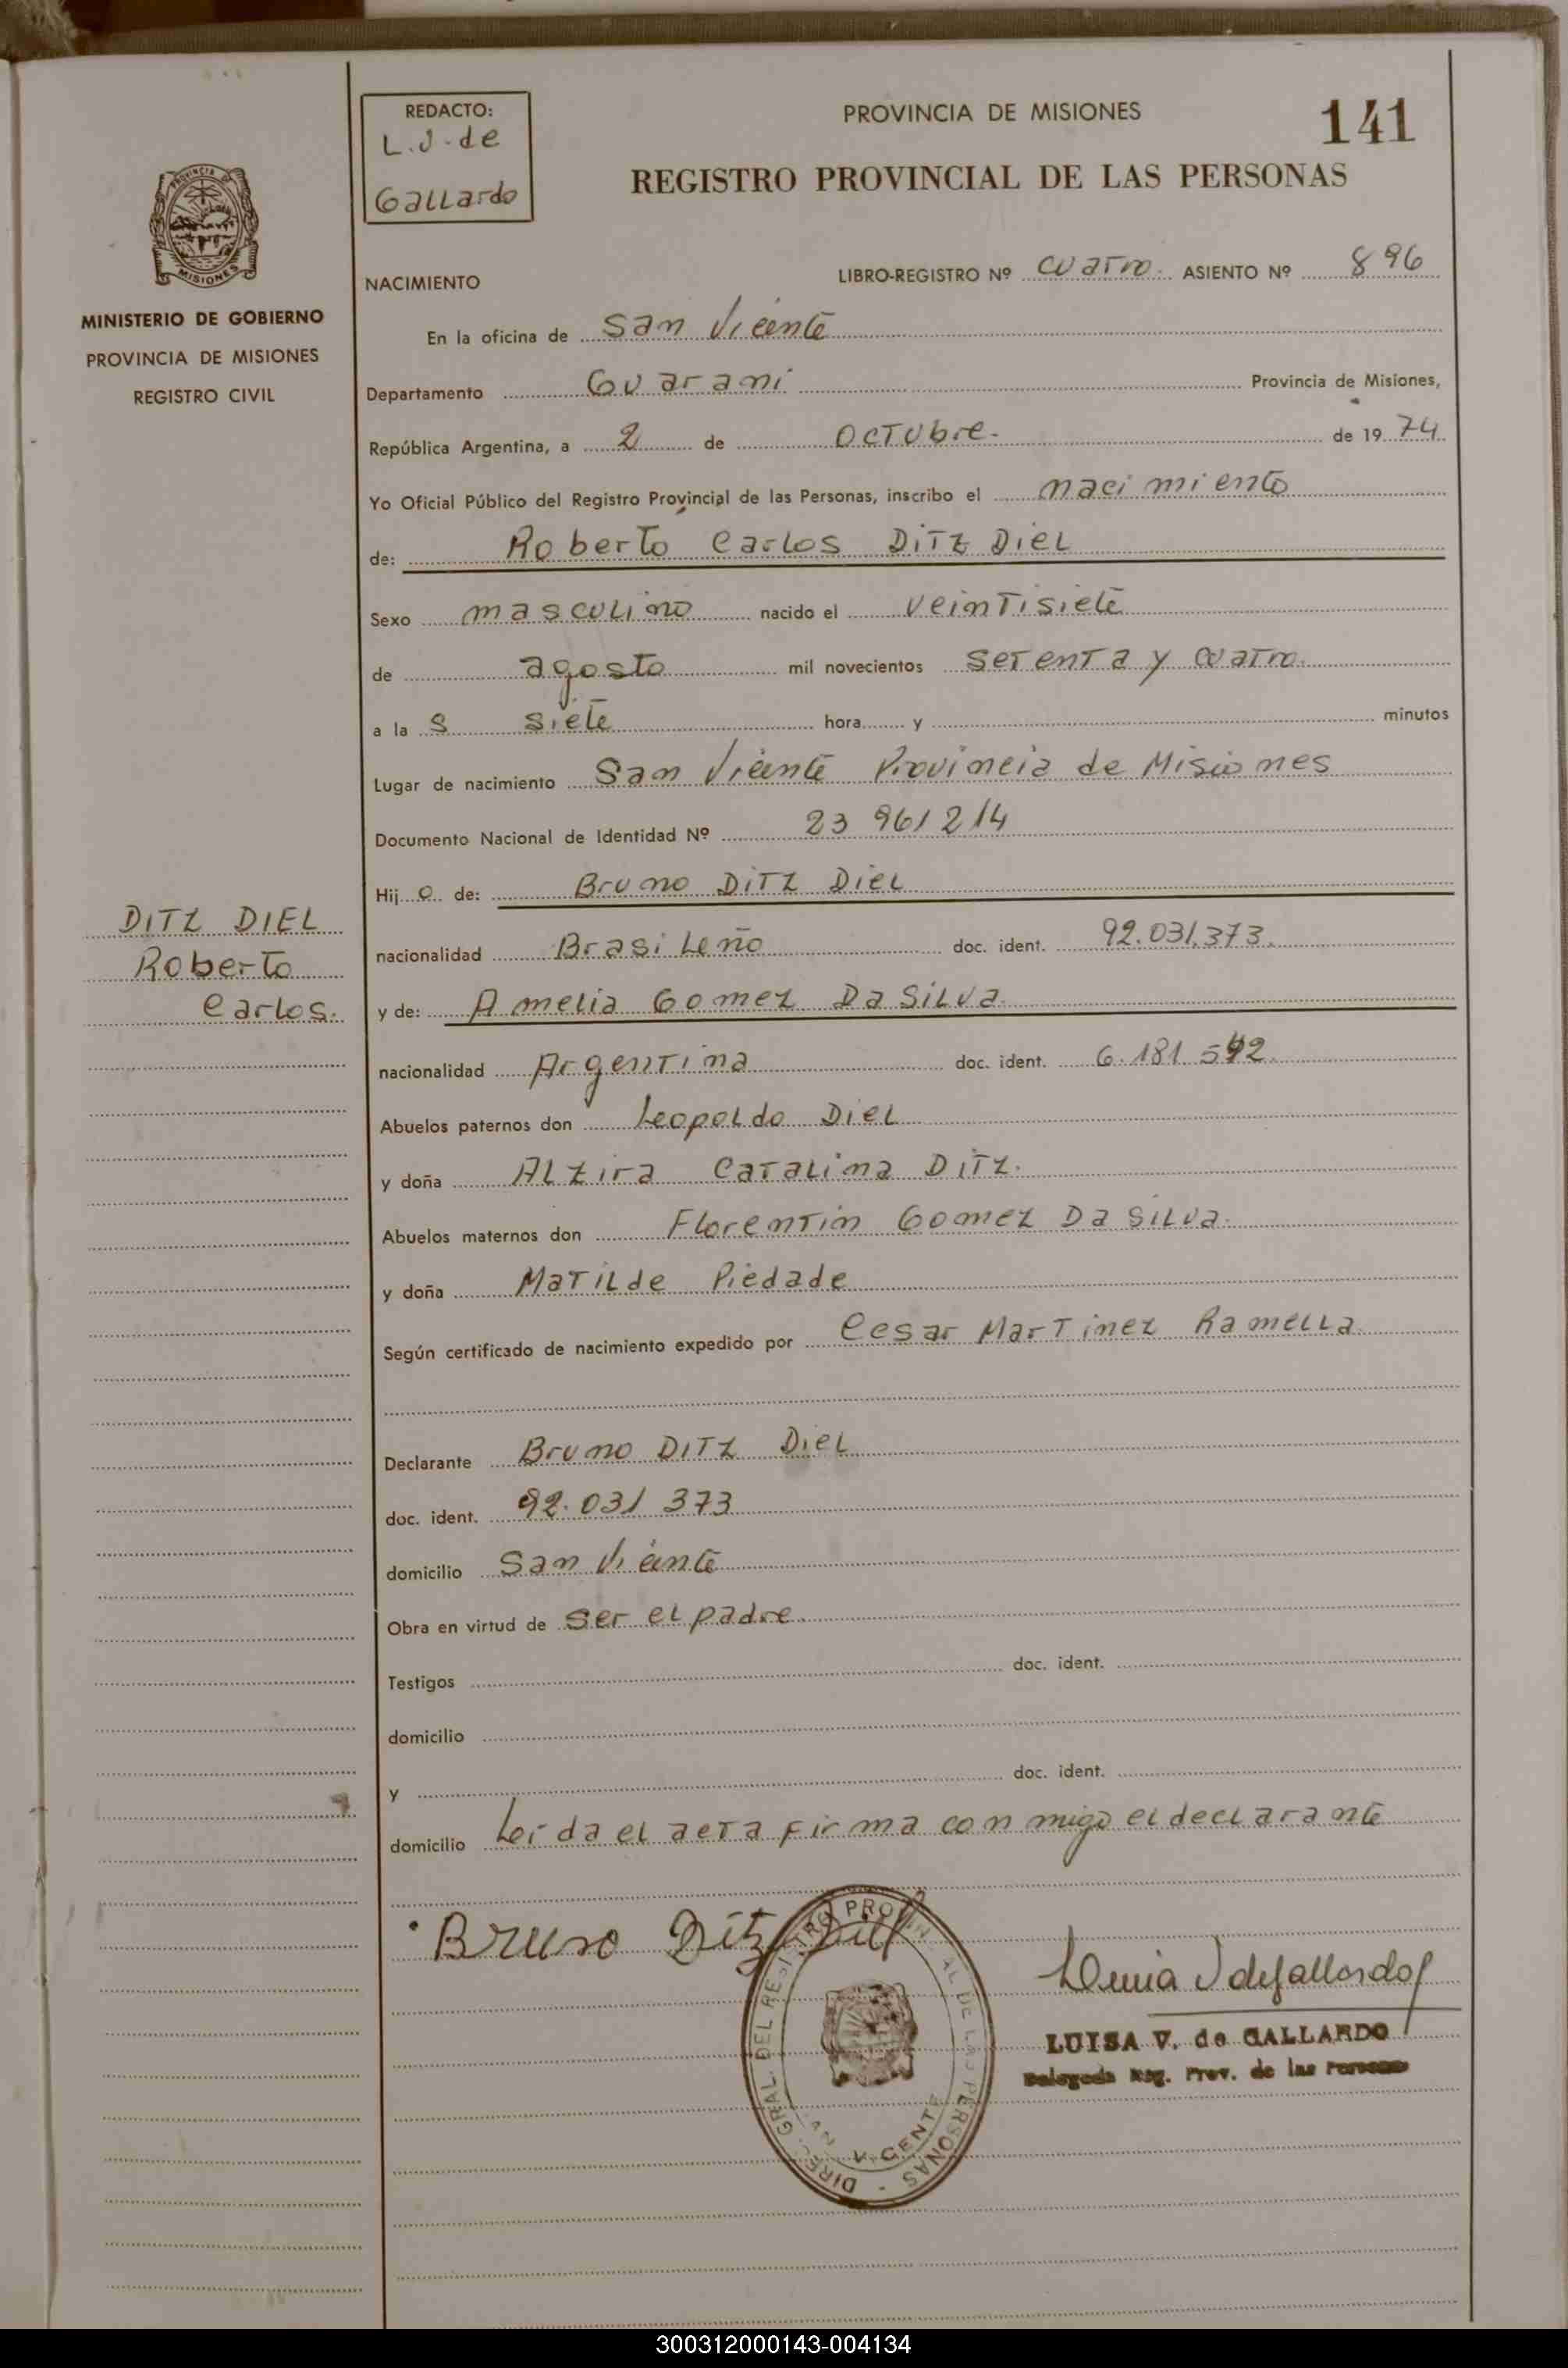 141
REDACTO:
L.V. de
Gallardo
PROVINCIA DE MISIONES
REGISTRO PROVINCIAL DE LAS PERSONAS
PROVINCIA
MISIONES
MINISTERIO DE GOBIERNO
PROVINCIA DE MISIONES
REGISTRO CIVIL
NACIMIENTO LIBRO-REGISTRO Nº cuatro. ASIENTO Nº 896
En la oficina de San Vicente
Departamento Guarani Provincia de Misiones,
República Argentina, a 2 de octubre. de 19 74
Yo Oficial Público del Registro Provincial de las Personas, inscribo el nacimiento
de: Roberto Carlos DITZ DIEL
Sexo masculino nacido el veintisiete
de agosto mil novecientos setenta y cuatro.
a la s siete hora y minutos
Lugar de nacimiento San Vicente Provincia de Misiones
Documento Nacional de Identidad Nº 23 961 214
Hij o de: Bruno DITZ DIEL
nacionalidad Brasileño doc. ident. 92.031.373.
y de: Amelia Gomez Da Silva.
nacionalidad Argentina doc. ident. 6.181 592.
DITZ DIEL
Roberto
Carlos.
Abuelos paternos don Leopoldo Diel
y doña Alzira Catalina Ditz.
Abuelos maternos don Florentin Gomez Da Silva.
y doña Matilde Piedade
Según certificado de nacimiento expedido por Cesar Martinez Ramella
Declarante Bruno DITZ Diel
doc. ident. 92.031 373
domicilio San Vicente
Obra en virtud de ser el padre.
Testigos doc. ident.
domicilio
y doc. ident.
domicilio Leida el acta firma conmigo el declarante
Bruno Ditz Diel
DIREC. GRAL. DEL REGISTRO PROVINCIAL DE LAS PERSONAS
SAN VICENTE
LUISA V. de GALLARDO
Delegada Reg. Prov. de las Personas
300312000143-004134